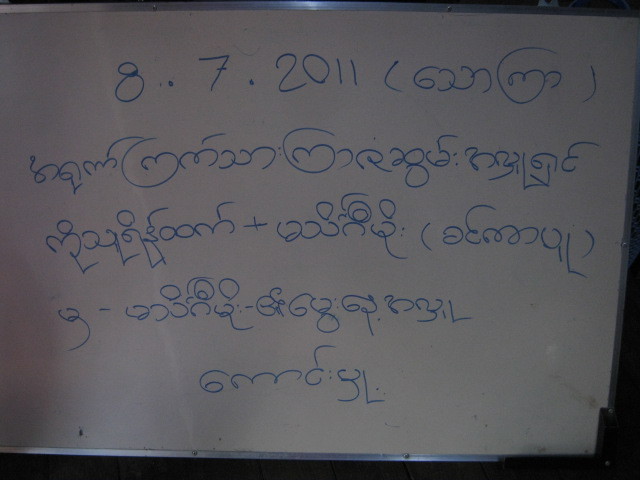 8.. 7. 2011 (သောကြာ)
အရုက် ကြက်သားကြာဇံဆွမ်းအလှူရှင်
ကိုသူရိန်ထက် + မသိင်္ဂီမိုး (စင်ကာပူ)
မှ - မသိင်္ဂီမိုး-၏မွေးနေ့အလှူ
ကောင်းမှု.